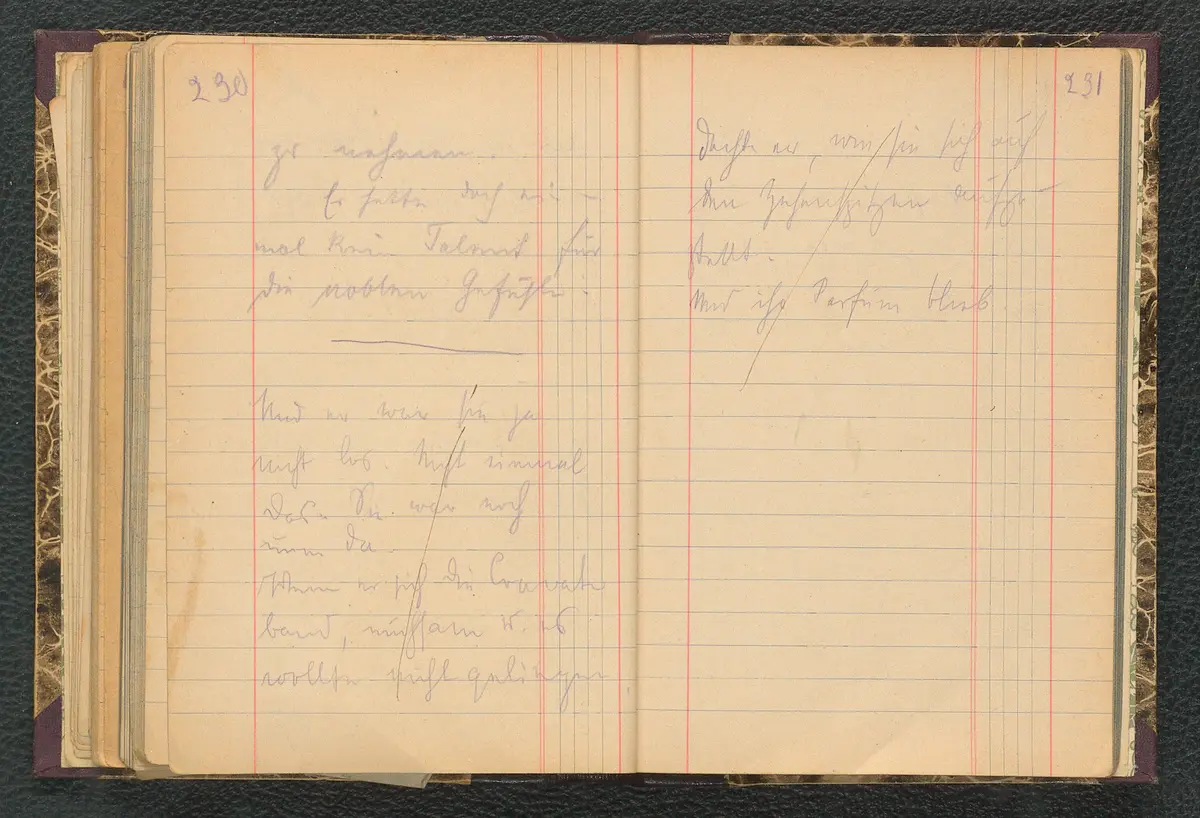 230
zu nehmen.
Er hatte doch ein-
mal kein Talent für
die noblen Gefühle.
Und er war sie ja
nicht los. Nicht einmal
das. Sie war noch
immer da.
Wenn er sich die Cravate
band, mühsam u. es
wollte nicht gelingen,
231
dachte er, wie sie sich auf
den Zehenspitzen aufge-
stellt.
Und ihr Parfüm blieb